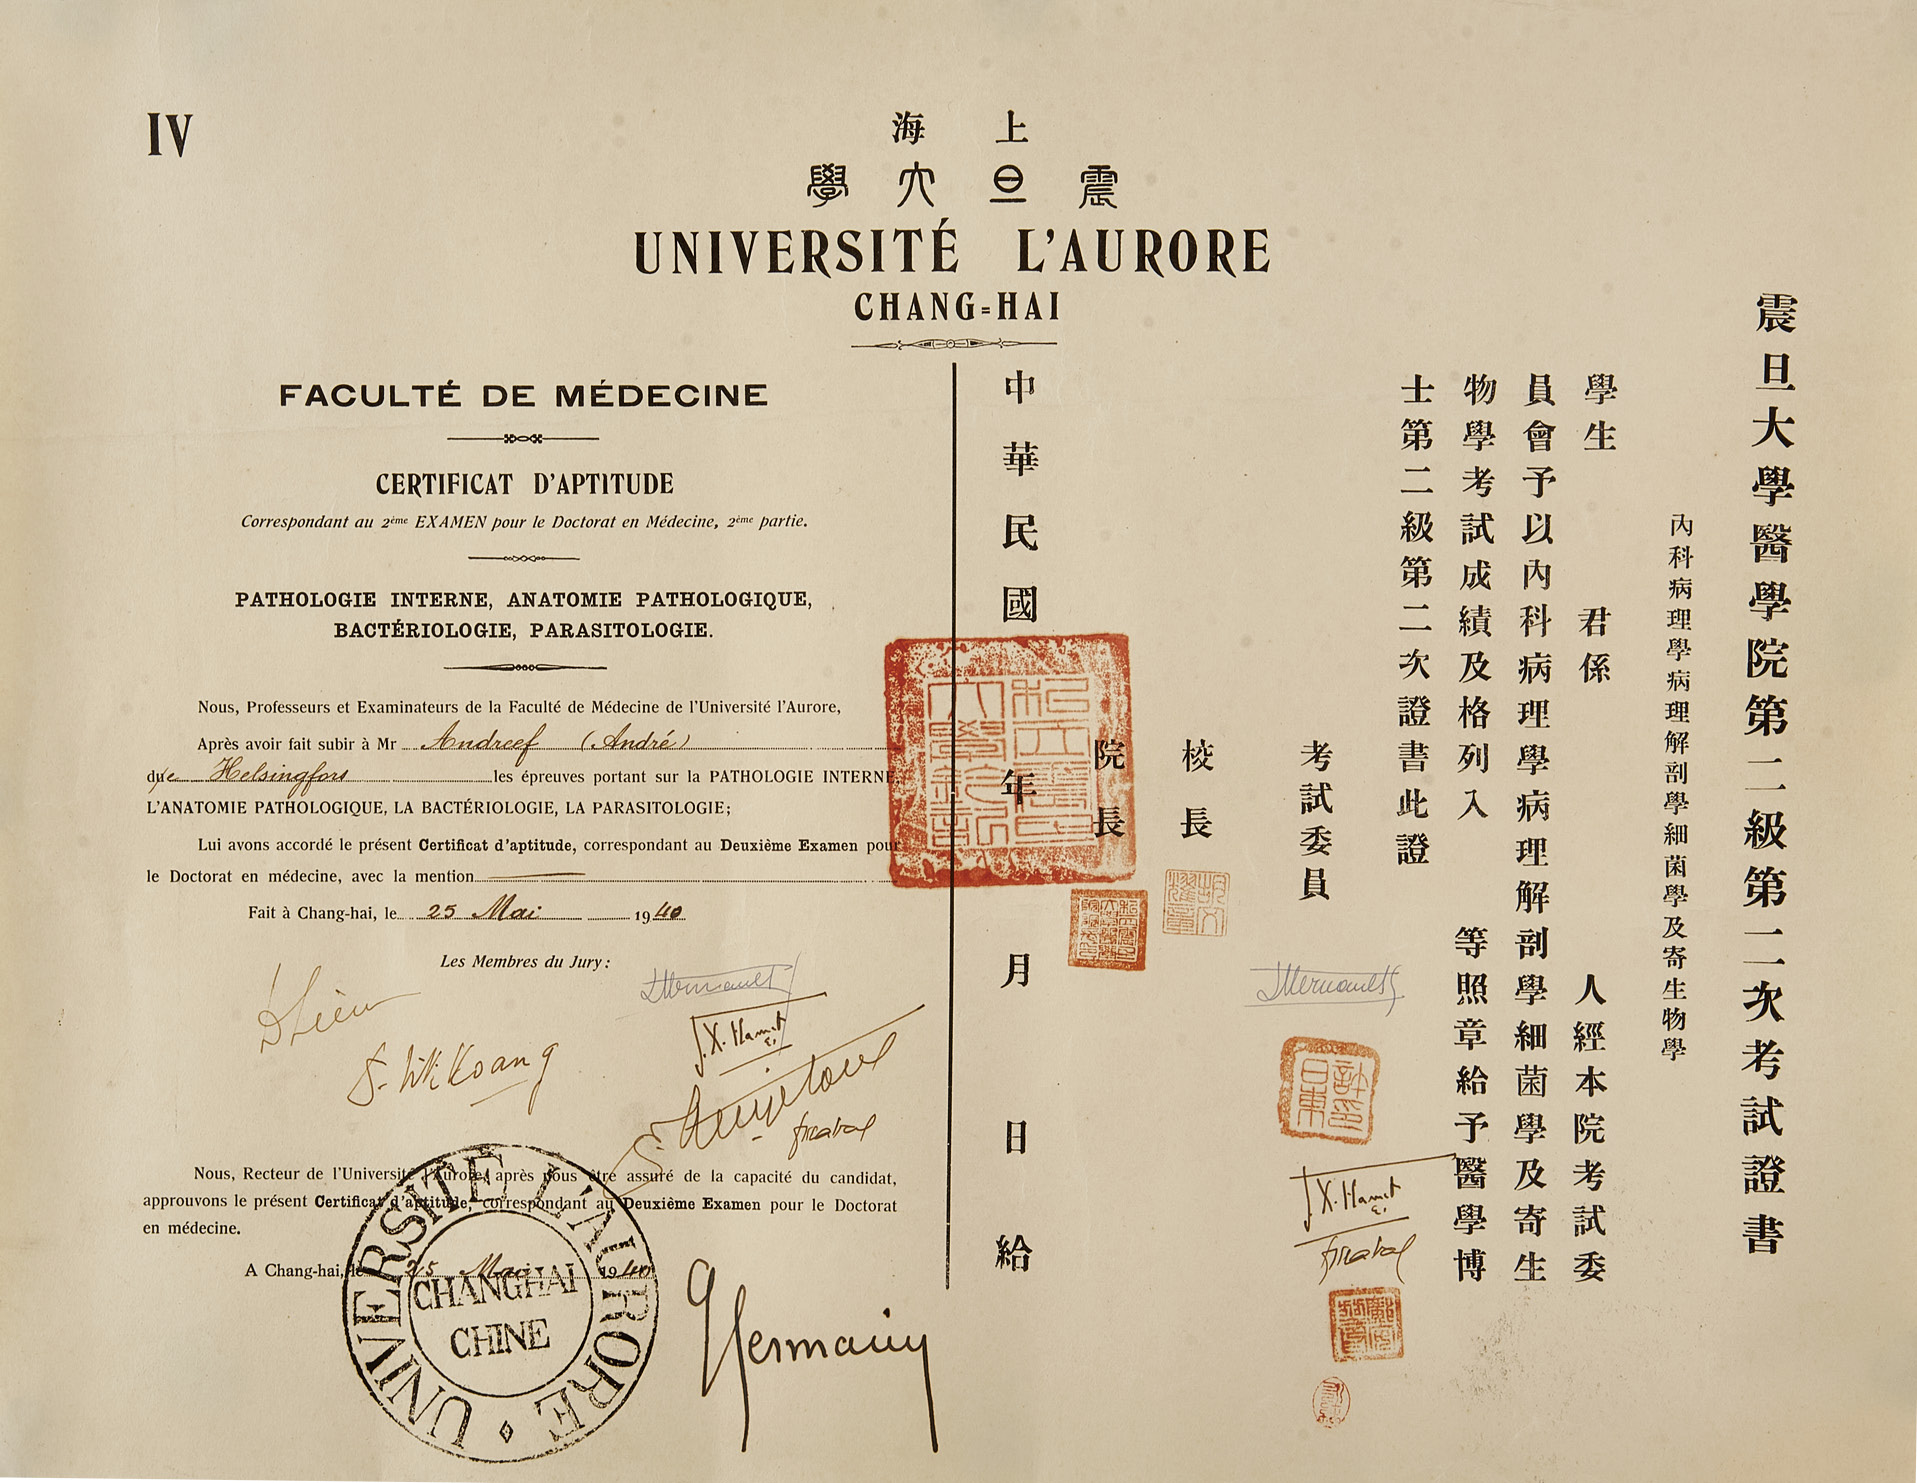 IV
海 上
學 大 旦 震
UNIVERSITÉ L'AURORE
CHANG=HAI
FACULTÉ DE MÉDECINE
CERTIFICAT D'APTITUDE
Correspondant au 2ème EXAMEN pour le Doctorat en Médecine, 2ème partie.
PATHOLOGIE INTERNE, ANATOMIE PATHOLOGIQUE,
BACTÉRIOLOGIE, PARASITOLOGIE.
Nous, Professeurs et Examinateurs de la Faculté de Médecine de l'Université l'Aurore,
Après avoir fait subir à Mr Andreef (André)
de Helsingfors les épreuves portant sur la PATHOLOGIE INTERNE,
L'ANATOMIE PATHOLOGIQUE, LA BACTÉRIOLOGIE, LA PARASITOLOGIE;
Lui avons accordé le présent Certificat d'aptitude, correspondant au Deuxième Examen pour
le Doctorat en médecine, avec la mention
Fait à Chang-hai, le 25 Mai 1940
Les Membres du Jury:
J.X. Hamet
Nous, Recteur de l'Université l'Aurore, après nous être assuré de la capacité du candidat,
approuvons le présent Certificat d'aptitude, correspondant au Deuxième Examen pour le Doctorat
en médecine.
A Chang-hai, le 25 Mai 1940
UNIVERSITÉ L'AURORE
CHANGHAI
CHINE
Germain
震旦大學醫學院第二級第二次考試證書
內科病理學病理解剖學細菌學及寄生物學
學生 君係 人經本院考試委
員會予以內科病理學病理解剖學細菌學及寄生
物學考試成績及格列入 等照章給予醫學博
士第二級第二次證書此證
考試委員
J.X. Hamet
校長
院長
中華民國 年 月 日給